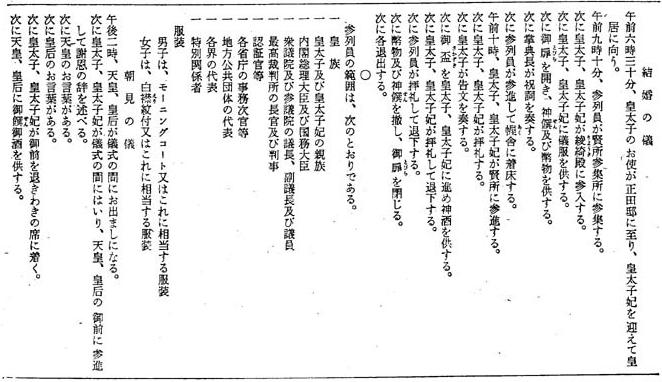 結婚の儀
午前六時三十分、皇太子のお使が正田邸に至り、皇太子妃を迎えて皇
居に向う。
午前九時十分、参列員が賢所参集所に参集する。
次に皇太子、皇太子妃が綾綺殿に参入する。
次に皇太子、皇太子妃に儀服を供する。
次に御扉を開き、神饌及び幣物を供する。
次に掌典長が祝詞を奏する。
次に参列員が参進して幄舎に着床する。
午前十時、皇太子、皇太子妃が賢所に参進する。
次に皇太子、皇太子妃が拝礼する。
次に皇太子が告文を奏する。
次に御盃を皇太子、皇太子妃に進め神酒を供する。
次に皇太子、皇太子妃が拝礼して退下する。
次に参列員が拝礼して退下する。
次に幣物及び神饌を撤し、御扉を閉じる。
次に各退出する。
○
参列員の範囲は、次のとおりである。
一 皇族
一 皇太子及び皇太子妃の親族
一 内閣総理大臣及び国務大臣
一 衆議院及び参議院の議長、副議長及び議員
一 最高裁判所の長官及び判事
一 認証官等
一 各省庁の事務次官等
一 地方公共団体の代表
一 各界の代表
一 特別関係者
服装
男子は、モーニングコート又はこれに相当する服装
女子は、白襟紋付又はこれに相当する服装
朝見の儀
午後二時、天皇、皇后が儀式の間にお出ましになる。
次に皇太子、皇太子妃が儀式の間にはいり、天皇、皇后の御前に参進
して謝恩の辞を述べる。
次に天皇のお言葉がある。
次に皇后のお言葉がある。
次に皇太子、皇太子妃が御前を退きわきの席に着く。
次に天皇、皇后に御饌御酒を供する。